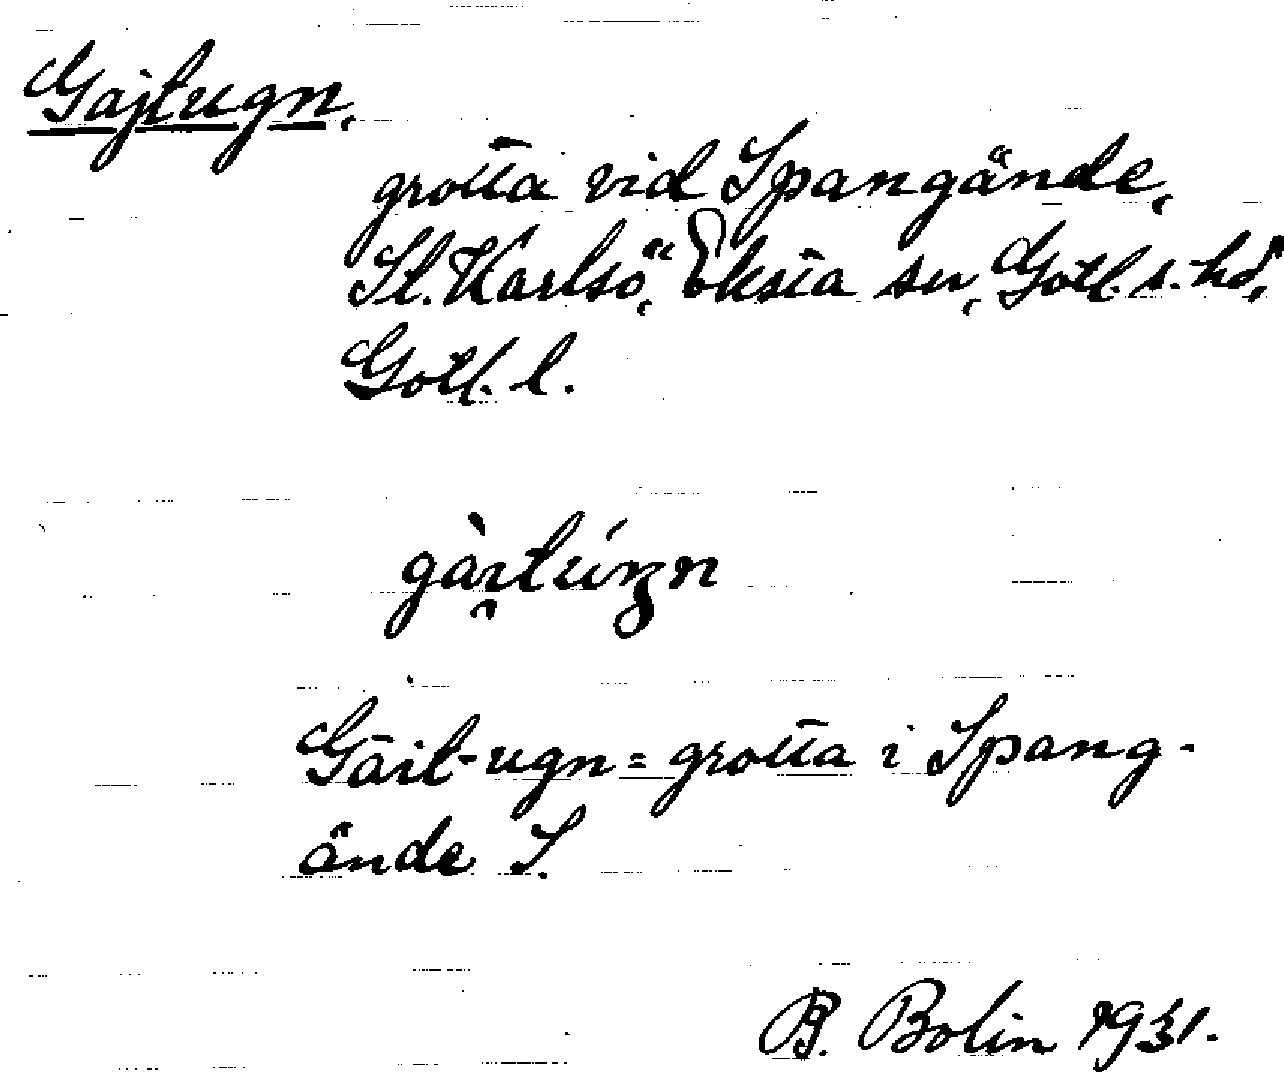 Gajtugn,
grotta vid Spangände,
St. Karlsö, Eksta sn, Gotl. s. hd,
Gotl. l.
Gāit-ugn = grotta i Spang-
ände S.
B. Bolin 1931.